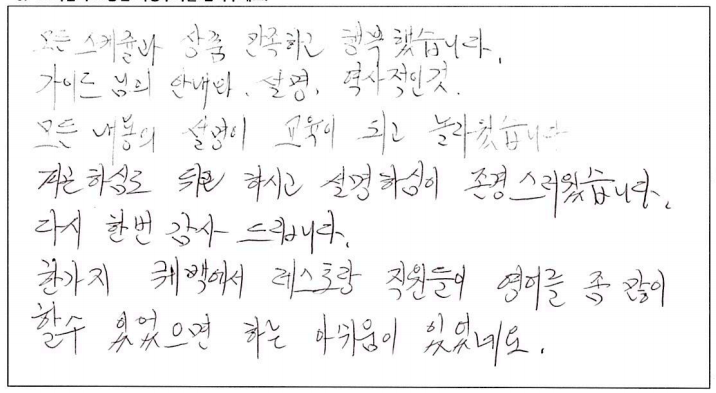 모든 스케쥴과 상품 만족하고 행복했습니다.
가이드 님의 안내와. 설명. 역사적인것.
모든 내용의 설명이 교육이 되고 놀라웠습니다
피곤하심로 하시고 설명하심이 존경스러웠습니다.
다시 한번 감사 드립니다.
한가지 퀘백에서 레스토랑 직원들이 영어를 좀 많이
할수 있었으면 하는 아쉬움이 있었네요.